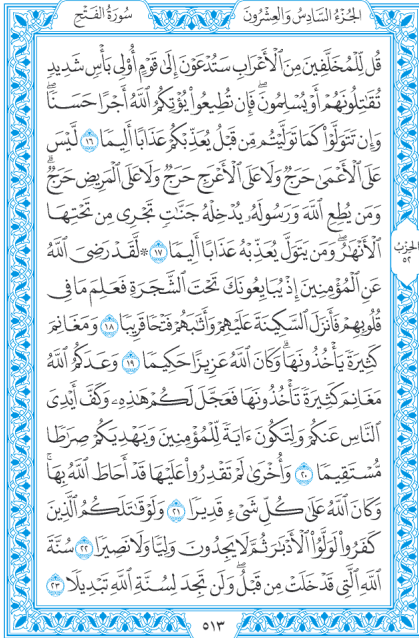 الجُزْءُ السَّادِسُ وَالعِشْرُونَ
سُورَةُ الفَتْحِ
قُل لِّلْمُخَلَّفِينَ مِنَ ٱلْأَعْرَابِ سَتُدْعَوْنَ إِلَىٰ قَوْمٍ أُو۟لِى بَأْسٍ شَدِيدٍ
تُقَٰتِلُونَهُمْ أَوْ يُسْلِمُونَ ۖ فَإِن تُطِيعُوا۟ يُؤْتِكُمُ ٱللَّهُ أَجْرًا حَسَنًا ۖ
وَإِن تَتَوَلَّوْا۟ كَمَا تَوَلَّيْتُم مِّن قَبْلُ يُعَذِّبْكُمْ عَذَابًا أَلِيمًا ١٦ لَّيْسَ
عَلَى ٱلْأَعْمَىٰ حَرَجٌ وَلَا عَلَى ٱلْأَعْرَجِ حَرَجٌ وَلَا عَلَى ٱلْمَرِيضِ حَرَجٌ ۗ
وَمَن يُطِعِ ٱللَّهَ وَرَسُولَهُۥ يُدْخِلْهُ جَنَّٰتٍ تَجْرِى مِن تَحْتِهَا
ٱلْأَنْهَٰرُ ۖ وَمَن يَتَوَلَّ يُعَذِّبْهُ عَذَابًا أَلِيمًا ١٧ ۞ لَّقَدْ رَضِىَ ٱللَّهُ
عَنِ ٱلْمُؤْمِنِينَ إِذْ يُبَايِعُونَكَ تَحْتَ ٱلشَّجَرَةِ فَعَلِمَ مَا فِى
قُلُوبِهِمْ فَأَنزَلَ ٱلسَّكِينَةَ عَلَيْهِمْ وَأَثَٰبَهُمْ فَتْحًا قَرِيبًا ١٨ وَمَغَانِمَ
كَثِيرَةً يَأْخُذُونَهَا ۗ وَكَانَ ٱللَّهُ عَزِيزًا حَكِيمًا ١٩ وَعَدَكُمُ ٱللَّهُ
مَغَانِمَ كَثِيرَةً تَأْخُذُونَهَا فَعَجَّلَ لَكُمْ هَٰذِهِۦ وَكَفَّ أَيْدِىَ
ٱلنَّاسِ عَنكُمْ وَلِتَكُونَ ءَايَةً لِّلْمُؤْمِنِينَ وَيَهْدِيَكُمْ صِرَٰطًا
مُّسْتَقِيمًا ٢٠ وَأُخْرَىٰ لَمْ تَقْدِرُوا۟ عَلَيْهَا قَدْ أَحَاطَ ٱللَّهُ بِهَا ۚ
وَكَانَ ٱللَّهُ عَلَىٰ كُلِّ شَىْءٍ قَدِيرًا ٢١ وَلَوْ قَٰتَلَكُمُ ٱلَّذِينَ
كَفَرُوا۟ لَوَلَّوُا۟ ٱلْأَدْبَٰرَ ثُمَّ لَا يَجِدُونَ وَلِيًّا وَلَا نَصِيرًا ٢٢ سُنَّةَ
ٱللَّهِ ٱلَّتِى قَدْ خَلَتْ مِن قَبْلُ ۖ وَلَن تَجِدَ لِسُنَّةِ ٱللَّهِ تَبْدِيلًا ٢٣
الحِزْبُ
٥٢
٥١٣